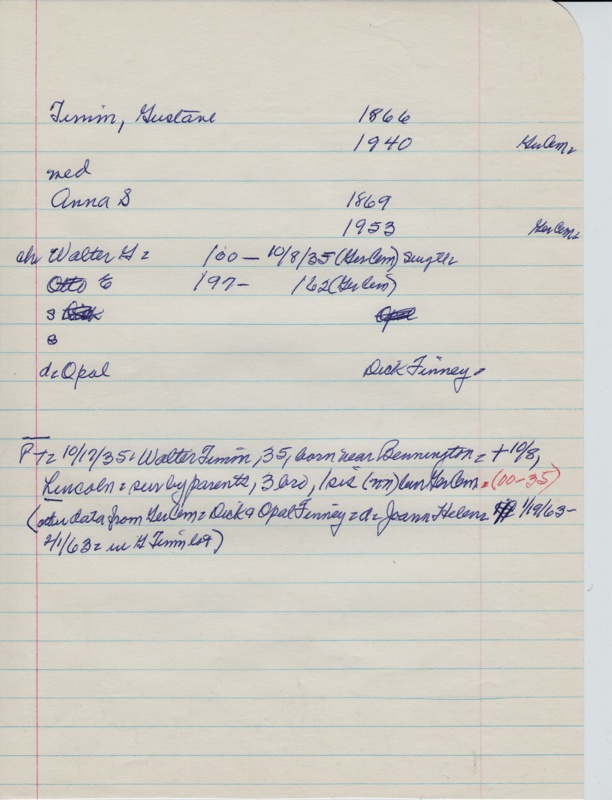 Timm, Gustave 1866
1940 GerCem
med
Anna S 1869
1953 GerCem
ch Walter G= 100 - 10/8/35 (GerCem) single
Otto E 197- 162 (GerCem)
S
S
d= Opal Dick Finney
P += 10/17/35: Walter Timm, 35, born near Bennington = + 10/8,
Lincoln = sur by parents, 3 bro, 1 sis (nn) bur GerCem = (00-35)
(other data from GerCem = Dick & Opal Finney = d= Joann Helen= 1/19/63-
2/1/63= in G Timm lot)